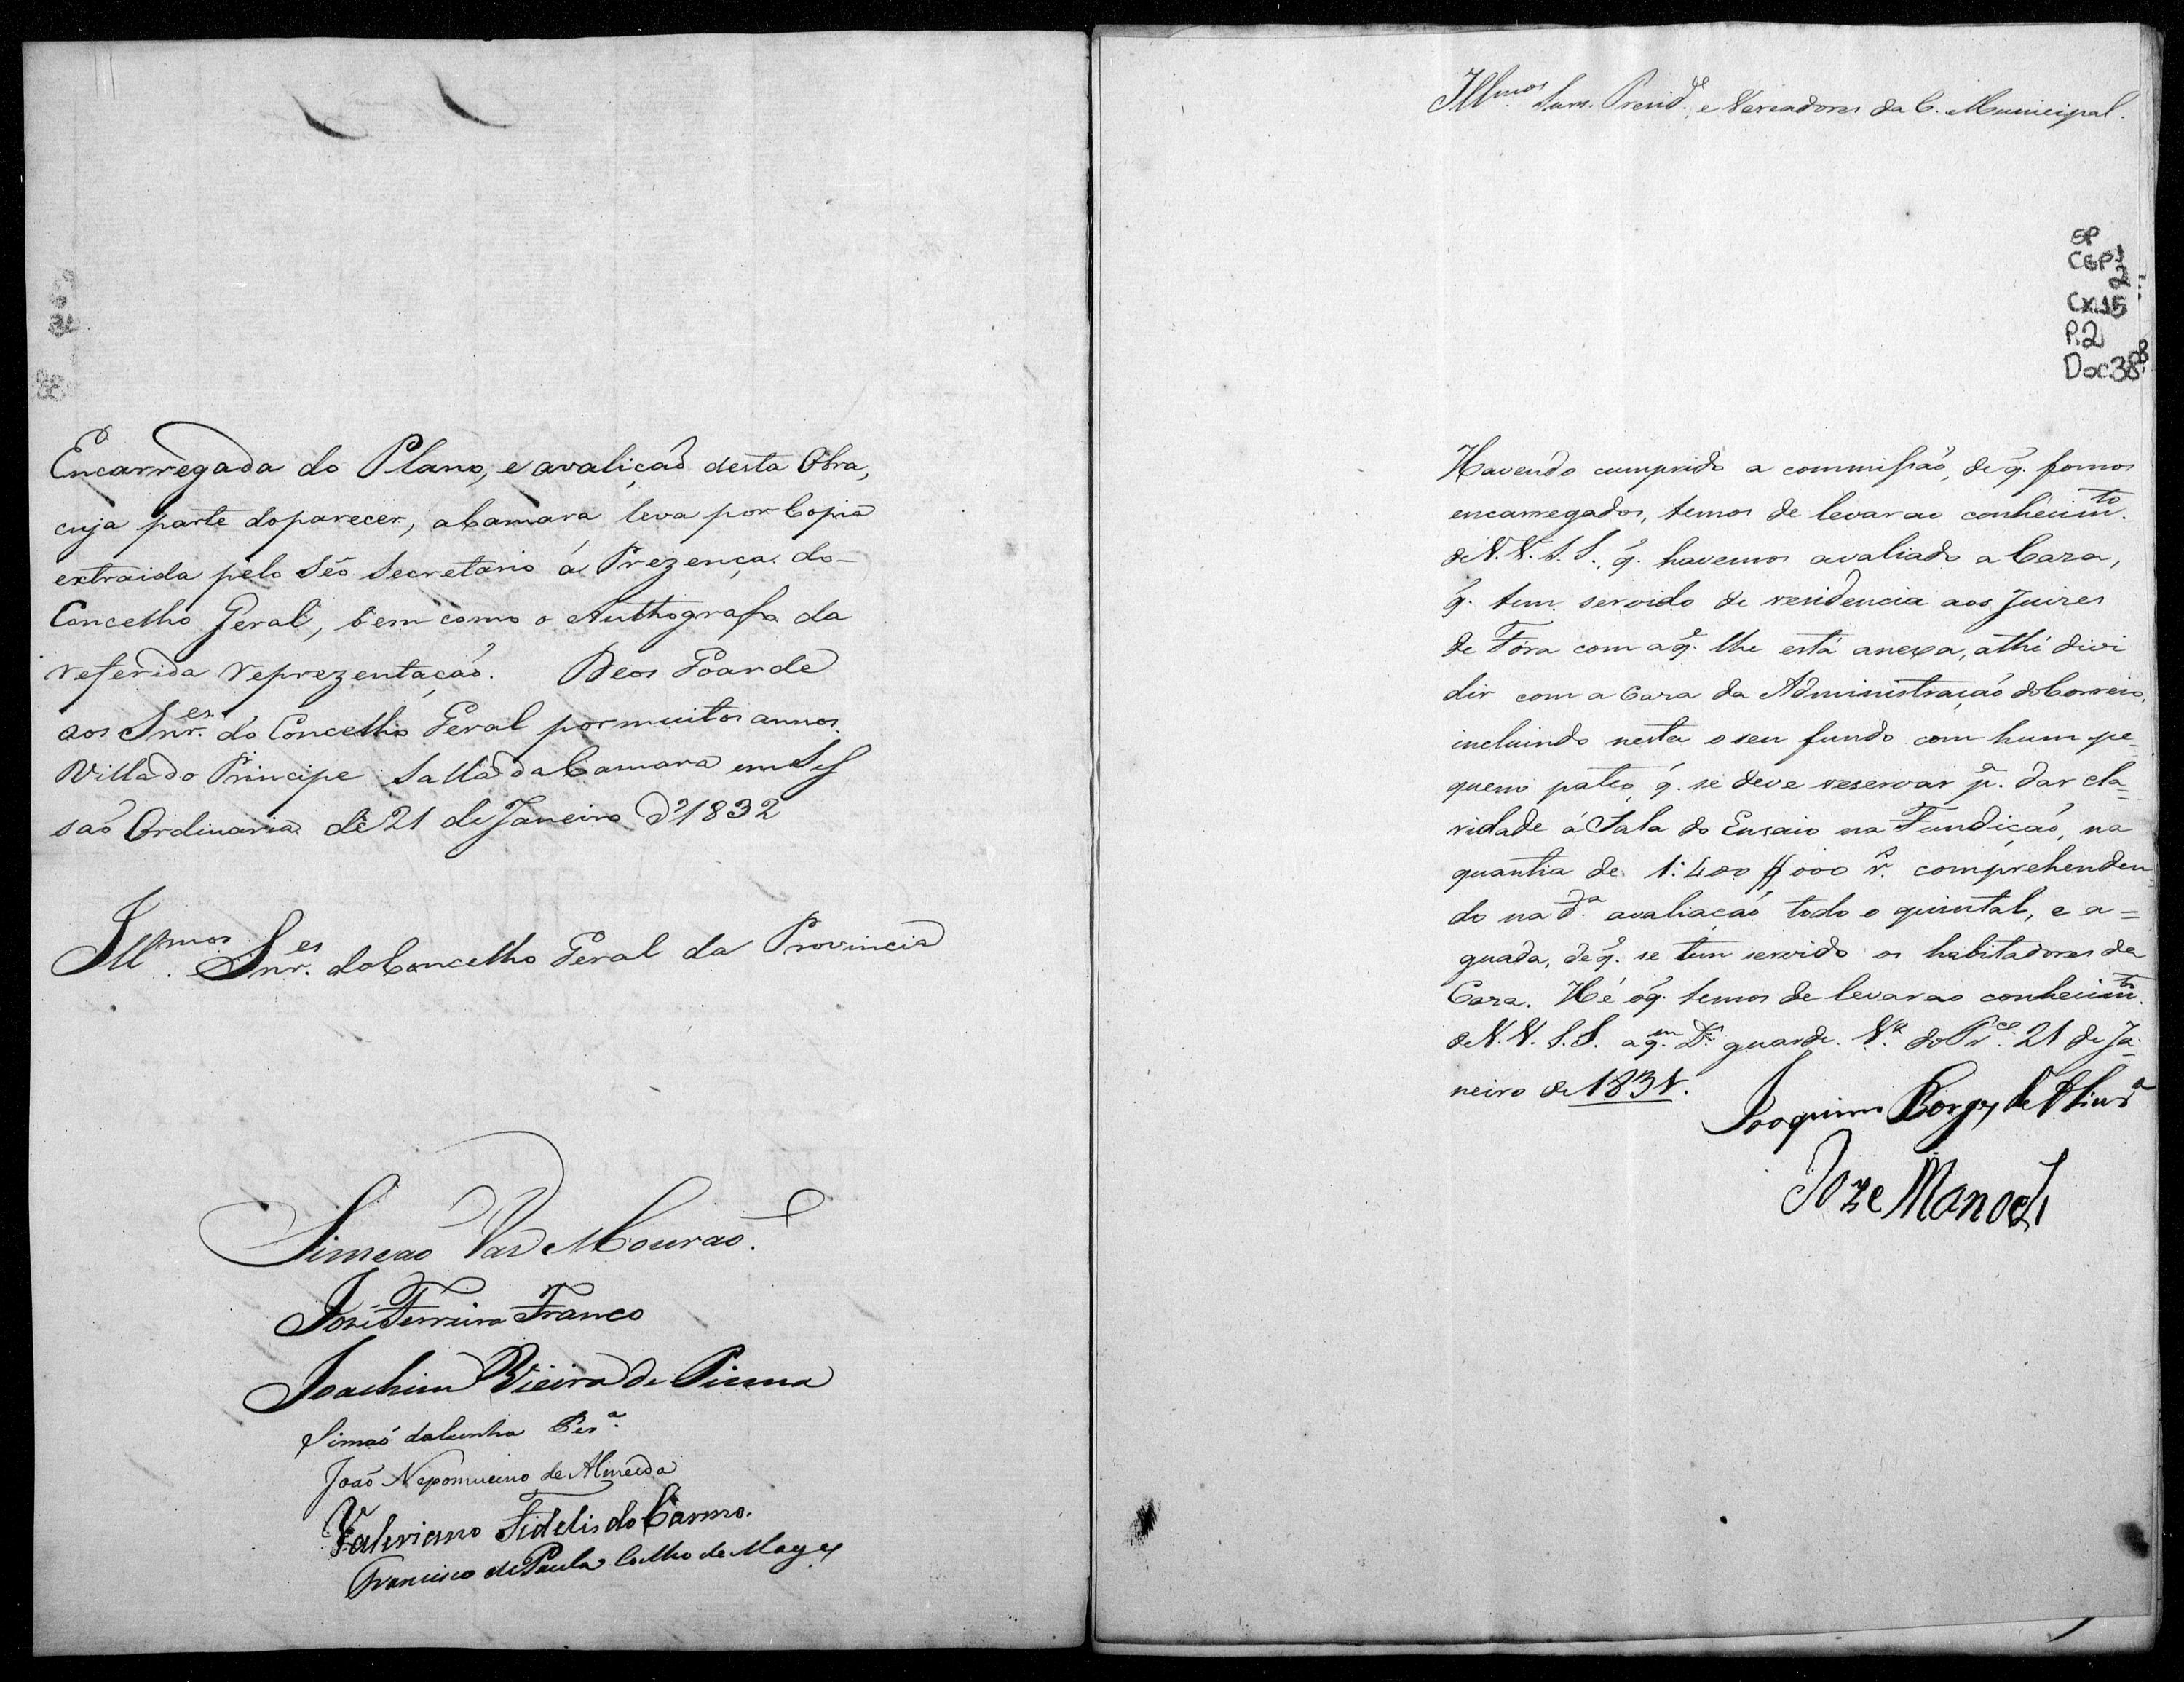 Encarregada do Plano, e avaliçaõ desta Obra,
cuja parte doparecer, aCamara leva por Copia
extraida pelo Séo Secretario á Prezença do-
Concelho Geral, bem como o Authografo da
referida reprezentaçaõ. Deos Goarde
aos Snr.es do Concelho Geral por muitos annos.
Villa do Principe Salla da Camara em Ses
saõ Ordinaria de 21 de Janeiro d'1832
Ill.mos Snr.es do Concelho Geral da Provincia
Simeaõ Vaz Mouraõ.
José Ferreira Franco
Joachim Vieira de Pinna
Simaõ daCunha Per.a
Joaõ Nepomuceno de Almeida
Valeriano Fidelis do Carmo.
Francisco de Paula Coelho de Mag.es
Ill.mos Snrs. Presid.e, e Vereadores da C. Municipal.
SP
CGP1
2
CX.15
P.2
Doc38
Havendo cumprido a commissaõ, de q. fomos
encarregados, temos de levar ao conhecim.to
de V. V. S. S., q. havemos avaliado a Caza,
q. tem servido de residencia aos Juizes
de Fóra com a q. lhe está anexa, athé divi
dir com a Caza da Administraçaõ do Correio,
incluindo nesta o seu fundo com hum pe-
queno pateo, q. se deve reservar p.a dar cla=
ridade á Sala do Ensaio na Fundiçaõ, na
quantia de 1:400$000 r.s comprehenden=
do na d.a avaliaçaõ todo o quintal, e a=
guada, de q. se tem servido os habitadores da
Caza. Hé o q. temos de levar ao conhecim.to
de V. V. S. S. a q.m D.s guarde. V.a do Pr.e 21 de Ja-
neiro de
Joaquim Borges de
Joze Manoel